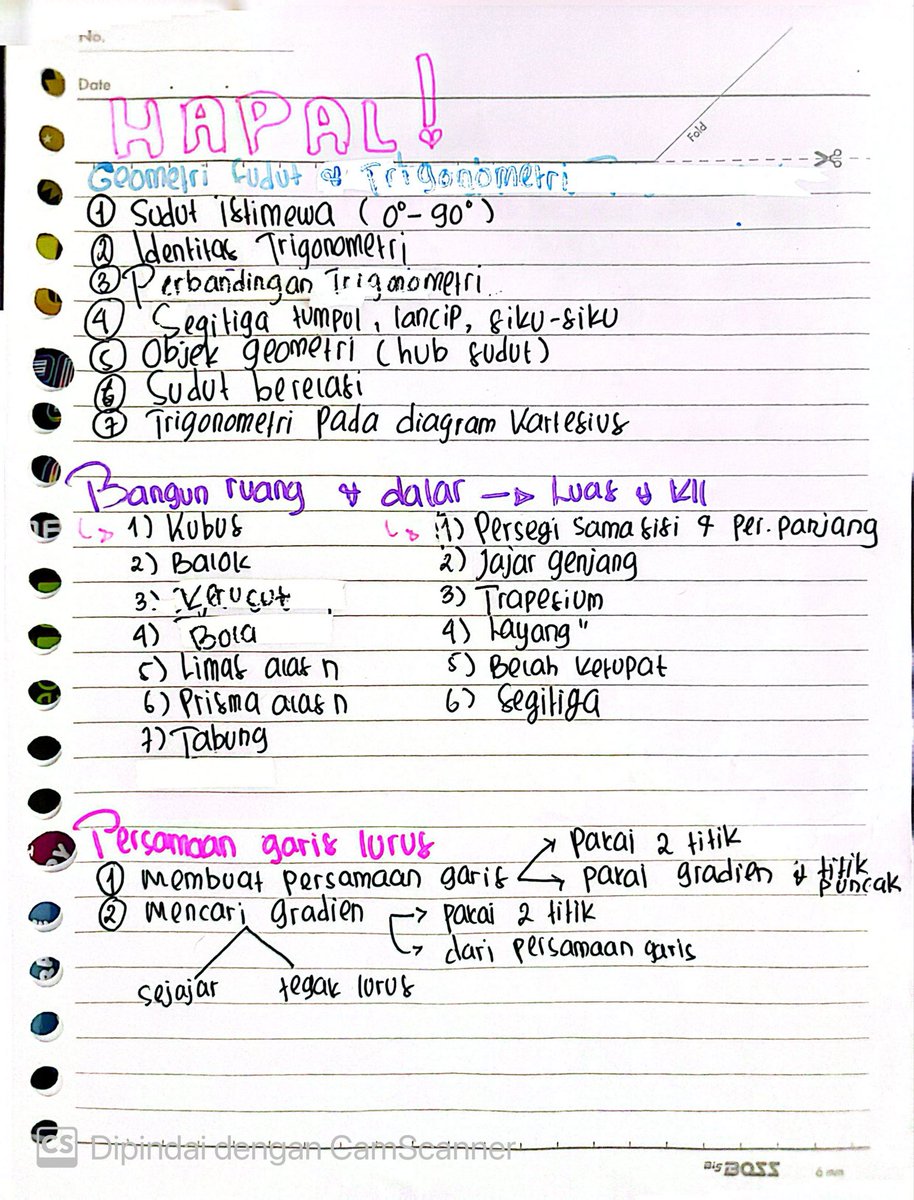 No.
Date
HAPAL!
Fold
Geometri Sudut & Trigonometri
① Sudut istimewa (0° - 90°)
② Identitas Trigonometri
③ Perbandingan Trigonometri
④ Segitiga tumpul, lancip, siku-siku
⑤ Objek geometri (hub sudut)
⑥ Sudut berelasi
⑦ Trigonometri pada diagram kartesius
Bangun ruang & dalar → Luas & Kll
↳ 1) Kubus
2) Balok
3) Kerucut
4) Bola
5) Limas alas n
6) Prisma alas n
7) Tabung
↳ 1) Persegi sama sisi & per. panjang
2) Jajar genjang
3) Trapesium
4) Layang"
5) Belah ketupat
6) Segitiga
Persamaan garis lurus
① membuat persamaan garis → pakai 2 titik
→ pakai gradien & titik puncak
② mencari gradien → pakai 2 titik
→ dari persamaan garis
sejajar tegak lurus
CS Dipindai dengan CamScanner
Big BOSS 6 mm